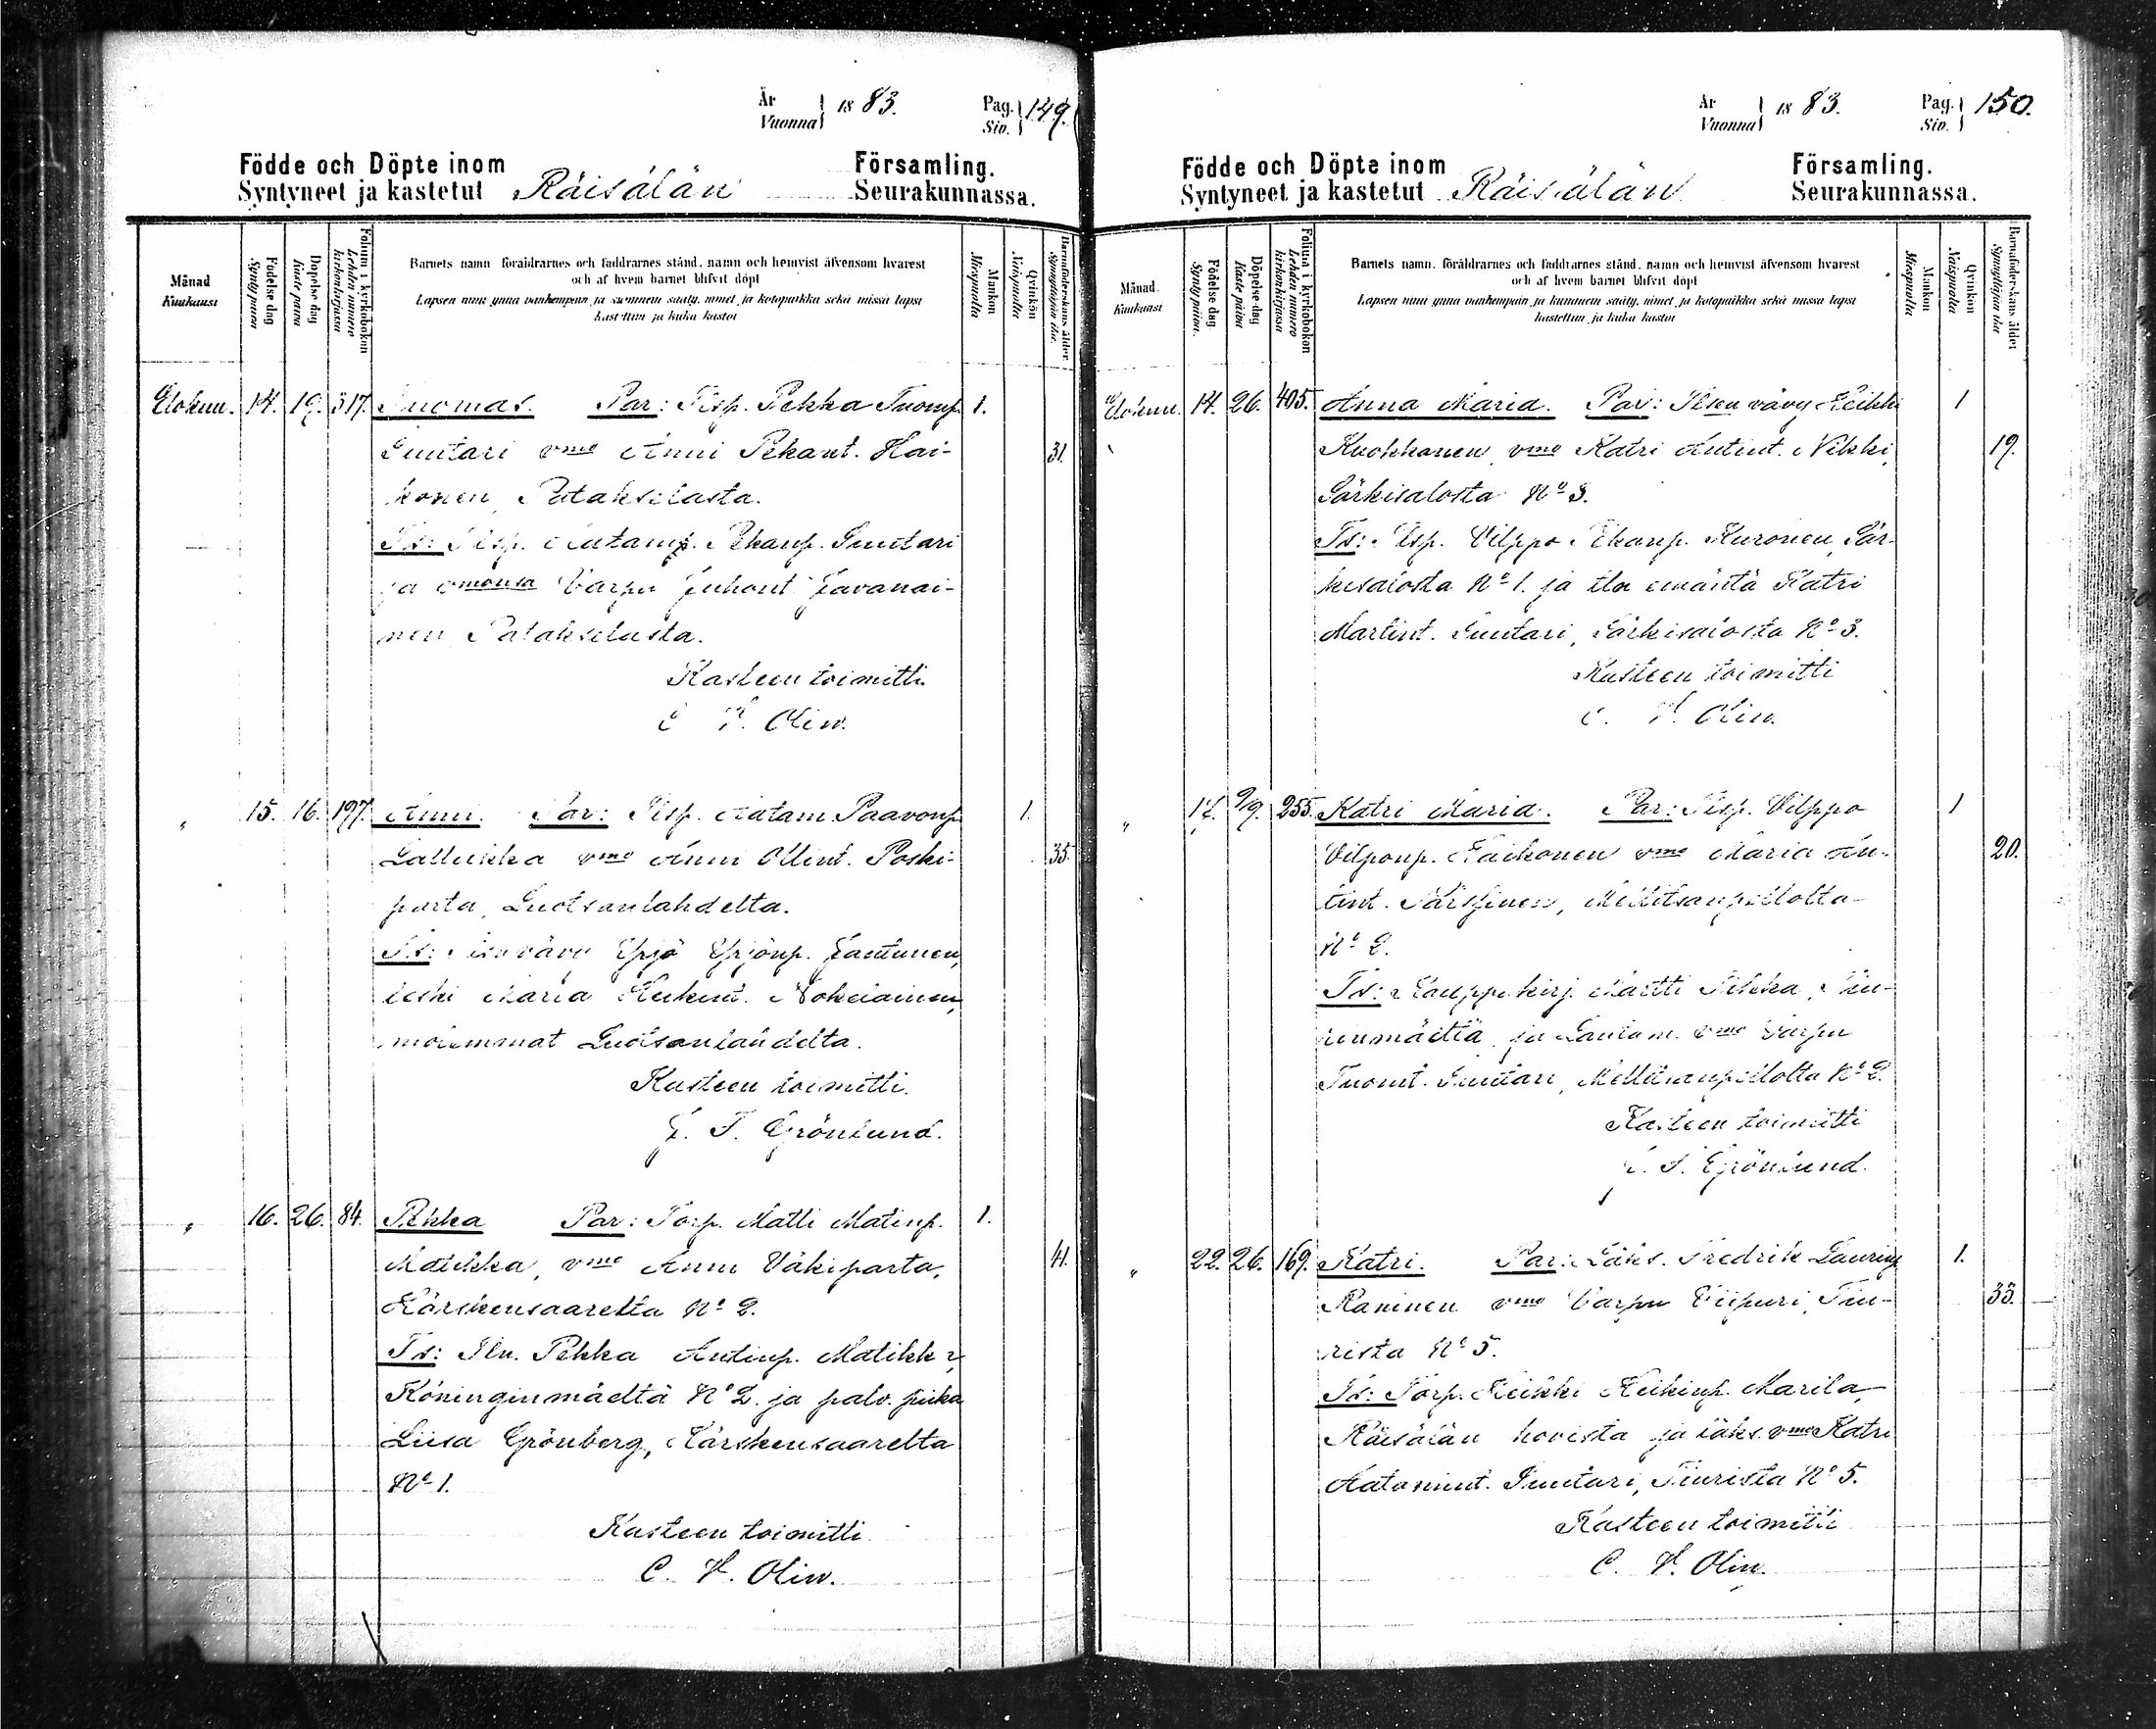 År
Vuonna 1883.
Pag.
Siv. 149.
Födde och Döpte inom Församling.
Syntyneet ja kastetut Räisälän Seurakunnassa.
Månad
Kuukausi
Födelse dag
Synty päivä
Döpelse dag
Kaste päivä
Folium i kyrkoboken
Lehden numero
kirkonkirjassa
Barnets namn föräldrarnes och faddrarnes stånd, namn och hemvist äfvensom hvarest
och af hvem barnet blifvit döpt
Lapsen nimi ynnä vanhempain ja kummein sääty, nimet ja kotopaikka sekä missä lapsi
kastettiin ja kuka kastoi
Mankön
Miespuolta
Qvinkön
Naispuolta
Barnaföderskans ålder
Synnyttäjän ikä.
Elokuu. 14. 19. 317. Tuomas. Par: Tisp. Pekka Tuomp. 1.
Suutari vmo Anni Pekant. Hai- 31.
konen, Patakselasta.
Ts: Tisp. Aatamp. Pekanp. Suutari
ja vmonsa Varpu Juhont. Javanai-
nen Patakselasta.
Kasteen toimitti
C. V. Olin.
" 15. 16. 197. Anni. Par: Tisp. Aatam Paavonp. 1.
Lallukka vmo Anni Ollint. Poski- 35.
parta, Luotsanlahdelta.
Ts: vävy Yrjö Yrjönp. Jantunen,
leski Maria Heikint. Nokelainen,
molemmat Luotsanlahdelta.
Kasteen toimitti.
J. F. Grönlund.
" 16. 26. 84. Pekka Par: Torp. Matti Matinp. 1.
Matikka, vmo Anni Väkiparta, 41.
Kärskensaarelta No 2.
Ts: Iln. Pekka Antinp. Matikka,
Köninginmäeltä No 2. ja palv. piika
Liisa Grönberg, Kärskensaarelta
No 1.
Kasteen toimitti
C. V. Olin.
År
Vuonna 1883.
Pag.
Siv. 150.
Födde och Döpte inom Församling.
Syntyneet ja kastetut Räisälän Seurakunnassa.
Månad.
Kuukausi
Födelse dag
Synty päivä.
Döpelse dag
Kaste päivä
Folium i kyrkoboken
Lehden numero
kirkonkirjassa
Barnets namn, föräldrarnes och faddrarnes stånd, namn och hemvist äfvensom hvarest
och af hvem barnet blifvit döpt
Lapsen nimi ynnä vanhempain ja kummein sääty, nimet ja kotopaikka sekä missä lapsi
kastettiin ja kuka kastoi
Mankön
Miespuolta
Qvinkön
Naispuolta
Barnaföderskans ålder
Synnyttäjän ikä
Elokuu. 14. 26. 405. Anna Maria. Par: Ilsen vävy Heikki 1
Kuokkanen vmo Katri Antint. Nikki, 19.
Särkisalosta No 3.
Ts: Tisp. Vilppo Pekanp. Kuronen, Sär-
kisalosta No 1. ja iln emäntä Katri
Martint. Suutari, Särkisalosta No 3.
Kasteen toimitti
C. V. Olin.
" 17. 9/9. 255. Katri Maria. Par: Tisp. Vilppo 1
Vilponp. Kaikonen vmo Maria An- 20.
tint. Kärkinen, Mellitsanpellolta
No 2.
Ts: Kauppakirj. Martti Pekka,
ja Lautam. vmo Varpu
Tuomt. Suutari, Mellitsanpellolta No 2.
Kasteen toimitti
J. F. Grönlund.
" 22. 26. 169. Katri. Par: Läks. Fredrik Laurinp. 1.
Kaninen vmo Varpu Viipuri, Tiu- 33.
rista No 5.
Ts: Torp. Heikki Heikinp. Marila,
Räisälän hovista ja läks. vmo Katri
Aatamint. Suutari, Tiurista No 5.
Kasteen toimitti
C. V. Olin.